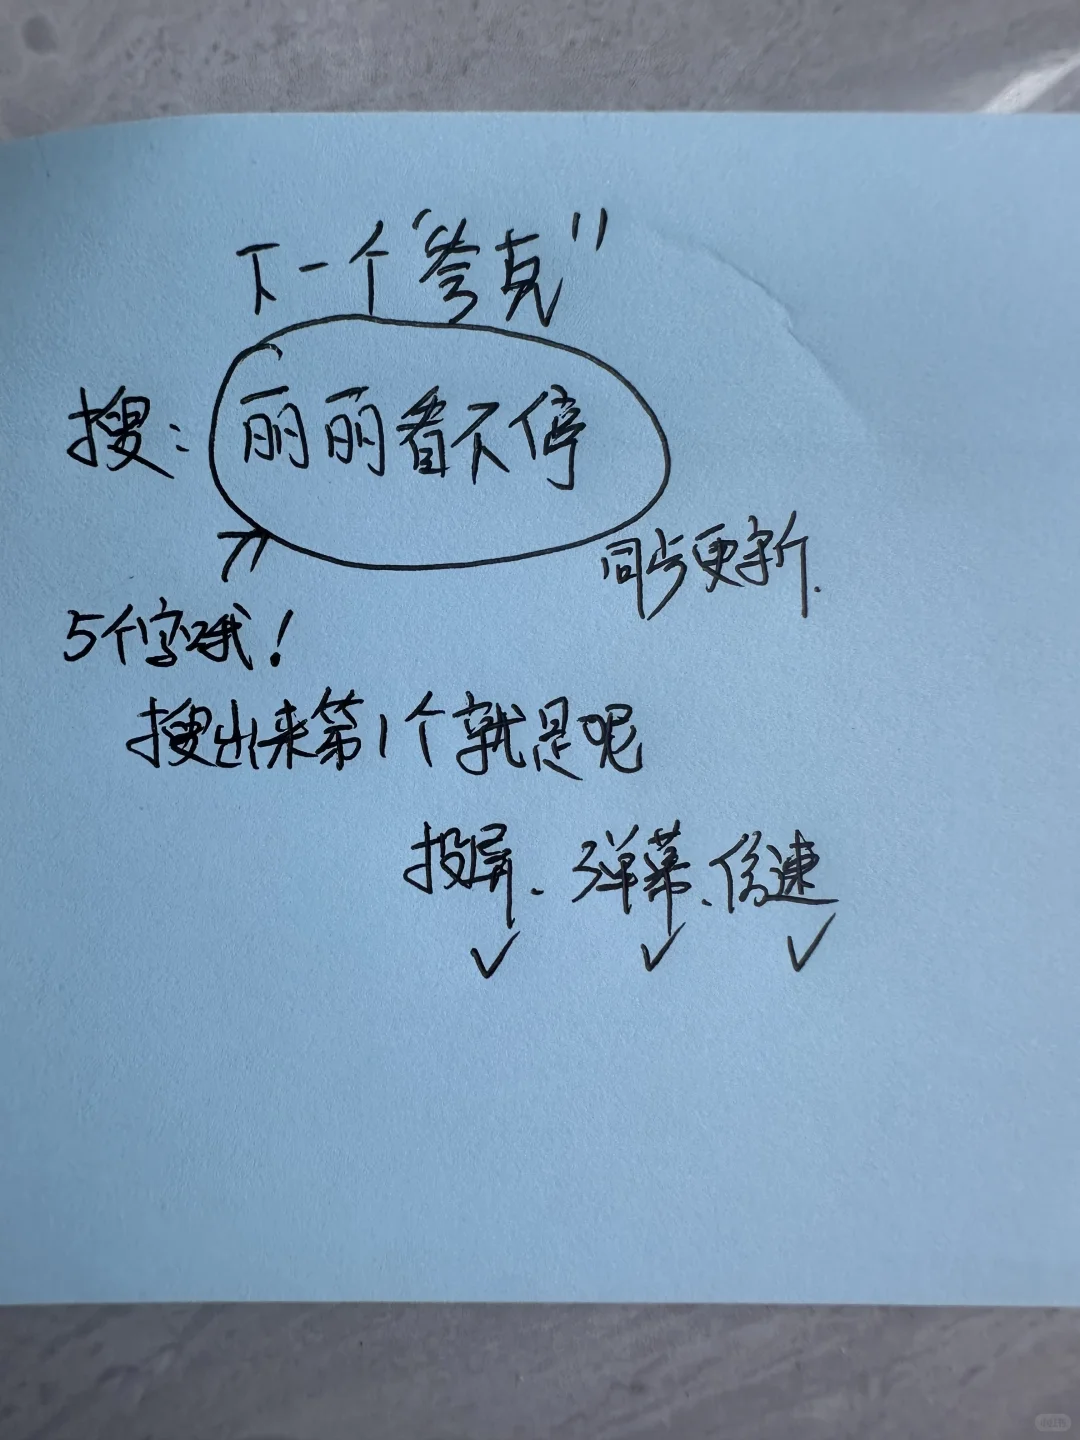 下一个“夸克”
搜：丽丽看不停
同步更新.
5个字哦！
搜出来第1个就是呢
投屏、弹幕、倍速
✓ ✓ ✓
小红书